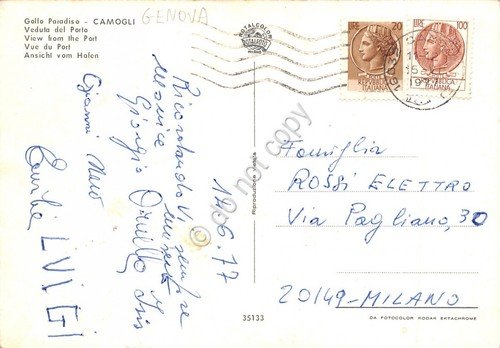 Golfo Paradiso - CAMOGLI
Veduta del Porto
View from the Port
Vue du Port
Ansicht vom Hafen
GENOVA
ROTALCOLOR
MILANO
LIRE 20
LIRE 100
REPUBBLICA ITALIANA
ITALIANA
Riproduzione vietata
17.6.77
Ricordandovi sempre
Giorgio Ornella Isis
Gianni
Emilia LUIGI
Famiglia
ROSSI ELETTRO
Via Pagliano, 30
20149-MILANO
35133
DA FOTOCOLOR KODAK EKTACHROME
© do not copy